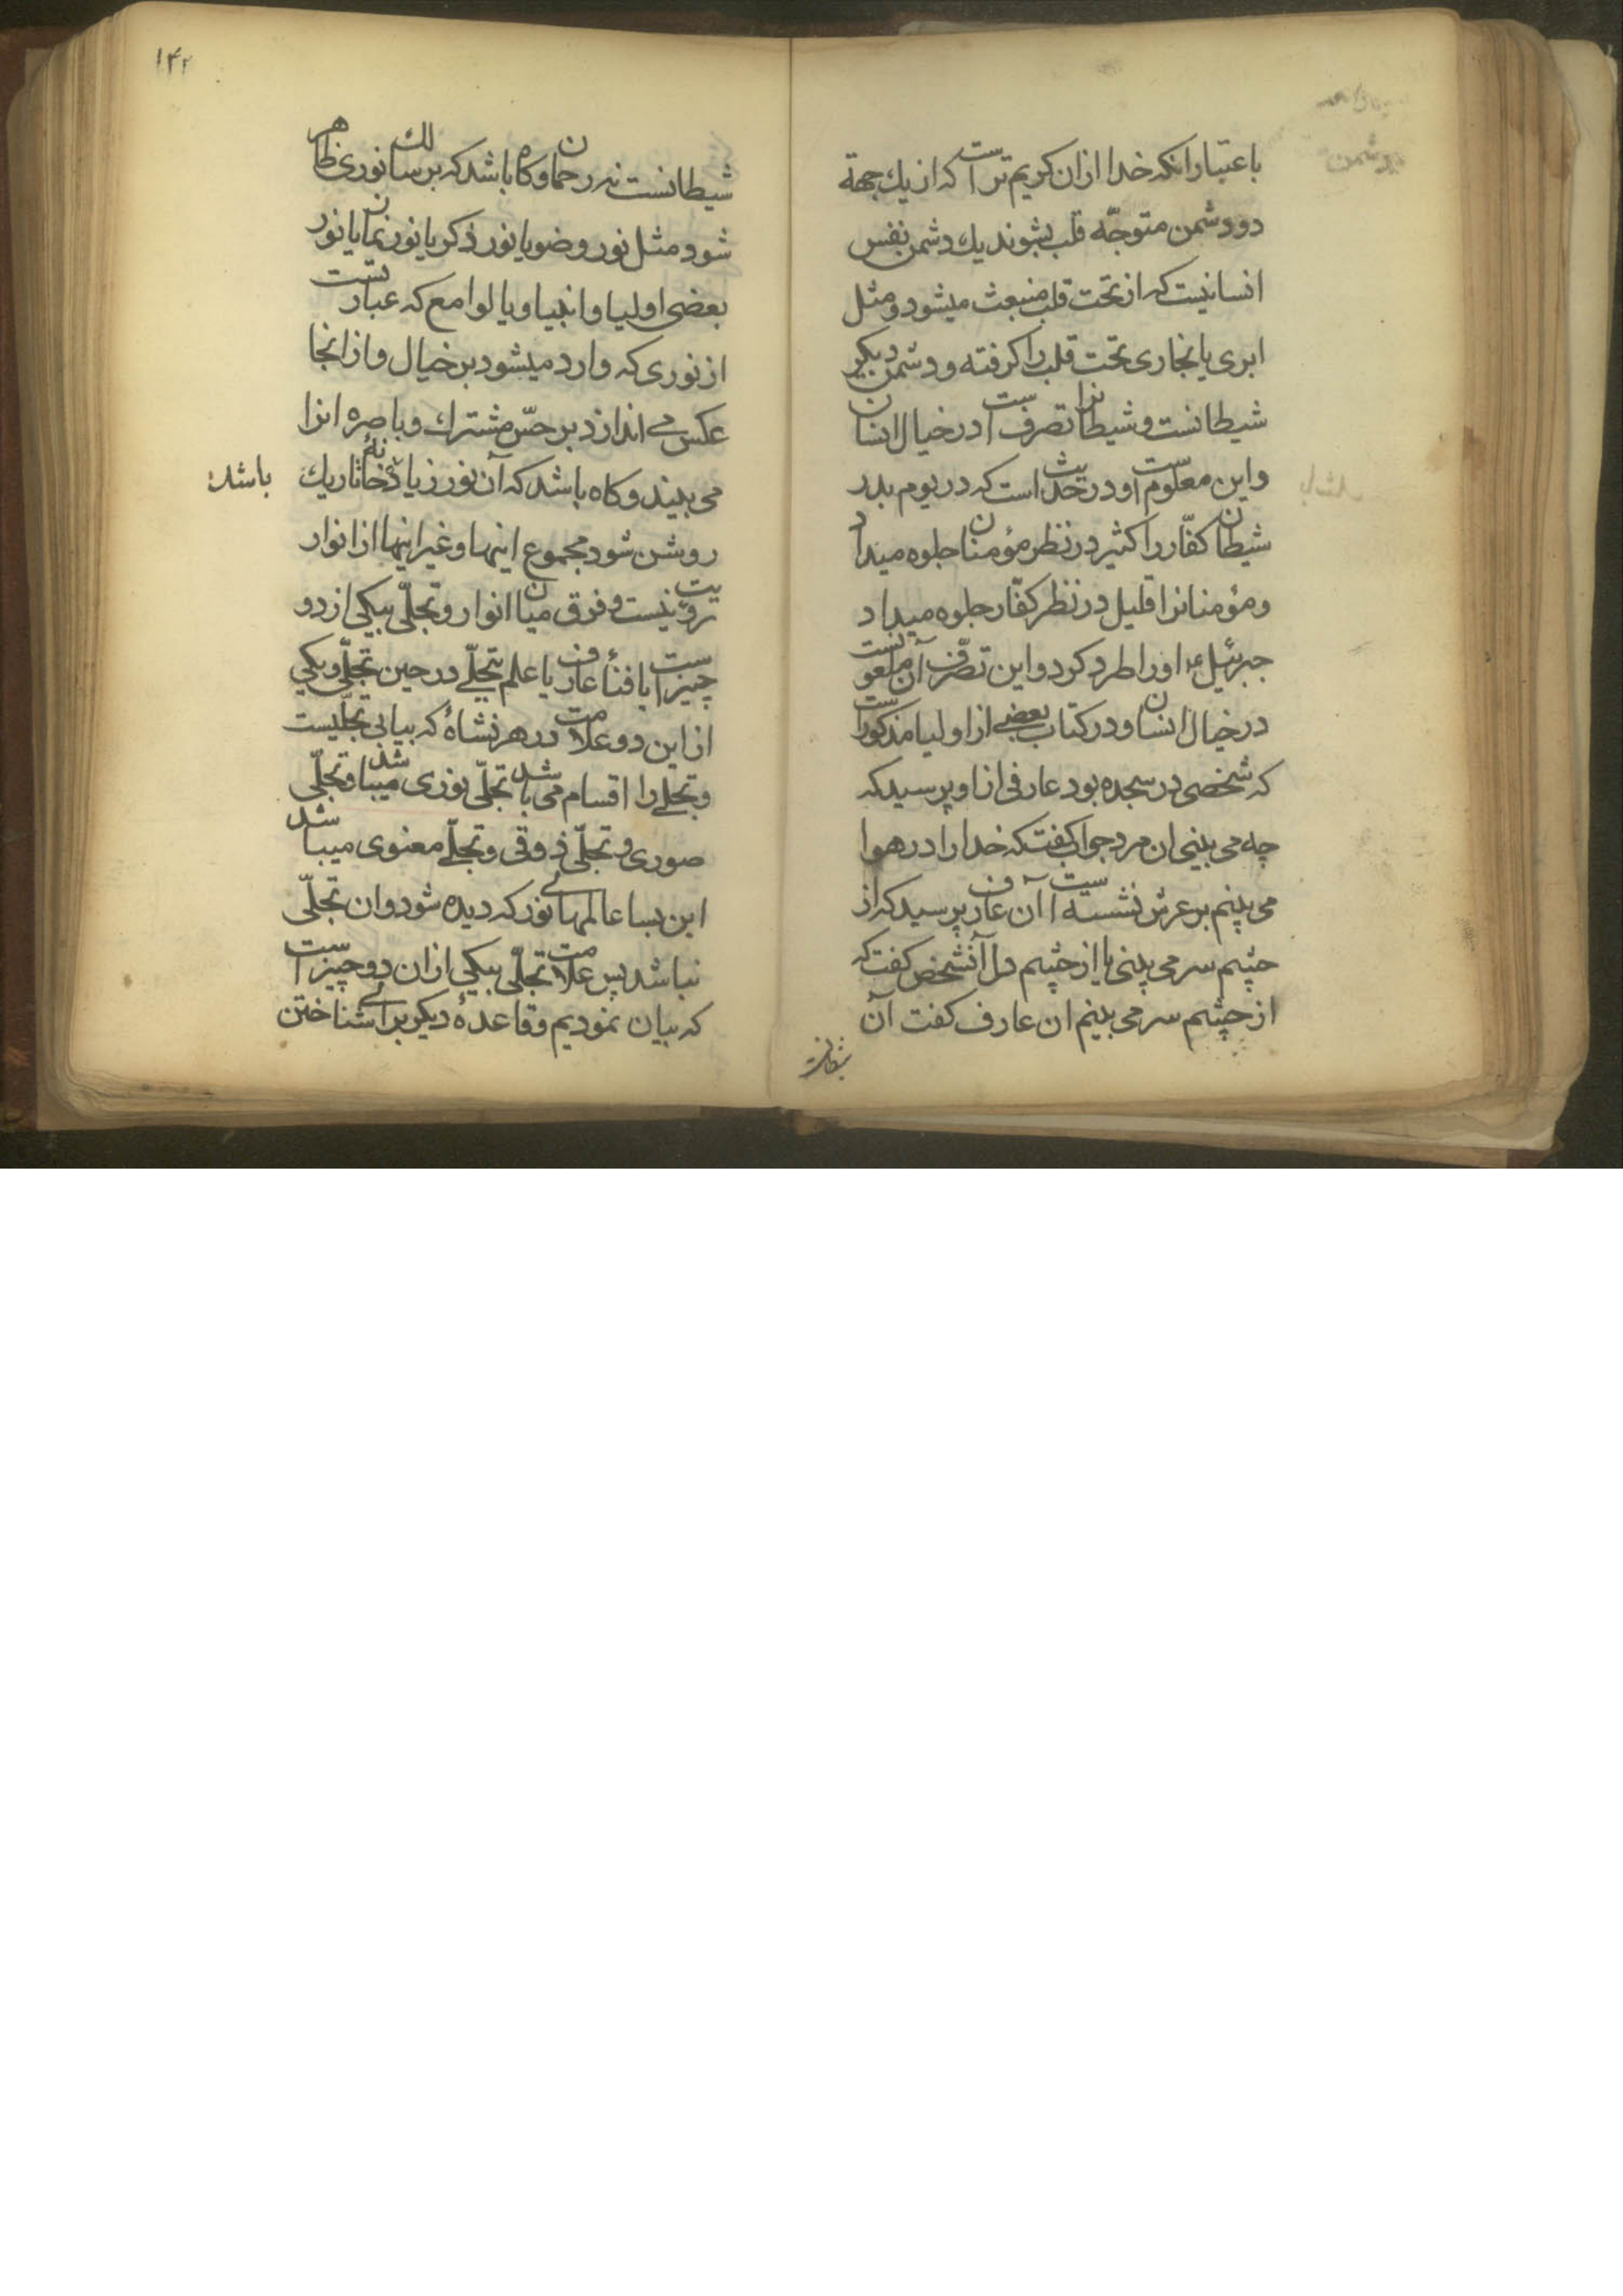 باعتبار انکه خدا ازان کریم تر است که از یك جهة
دو دشمن متوجّه قلب بشوند یك دشمن نفس
انسانیست که از تحت قلب منبعث میشود و مثل
ابری یا بخاری تحت قلب را کرفته و دشمن دیکیر
شیطانست و شیطانرا تصرف است در خیال انسان
و این معلوم است و در حدیث است که در یوم بدر
شیطان کفّار را کثیر در نظر مؤمنان جلوه میداد
و مؤمنانرا قلیل در نظر کفّار جلوه میداد
جبرئیل ع اورا طرد کرد و این تصّرف آن ملعونست
در خیال انسان و در کتاب بعضی از اولیا مذکور است
که شخصی در سجده بود عارفی از او پرسید که
چه می بینی ان مرد جواب کفت که خدا را در هوا
می بینم بر عرش نشسته است آن عارف پرسید که از
چشم سر می بینی یا از چشم دل آنشخص کفت که
از چشم سر می بینم ان عارف کفت آن
شیطانست
۱۴۲
شیطانست نه رحمان و کاه باشد که بر سالك نوری ظاهر
شود مثل نور وضو یا نور ذکر یا نور نماز یا نور
بعضی اولیا و انبیا و یا لوامع که عبارتست
از نوری که وارد میشود بر خیال و از انجا
عکس می اندازد بر حسّ مشترك و باصره انرا
می بیند و کاه باشد که آن نور زیاد خانهٔ تاریك
باشد
روشن شود مجموع اینها و غیر اینها از انوار
رویّت نیست و فرق میان انوار و تجلّی بیکی از دو
چیز است یا فناء عارف یا علم بتجلّی در حین تجلّی و یکی
از این دو علامت در هر نشاهٔ که بیابی تجلّیست
و تجلّی را اقسام می باشد تجلّی نوری میباشد و تجلّی
صوری و تجلّی ذوقی و تجلّی معنوی میباشد
این بسا عالمهای نور که دیده شود و ان تجلّی
نباشد پس علامت تجلّی بیکی از ان دو چیز است
که بیان نمودیم و قاعدهٔ دیکر برای شناختن